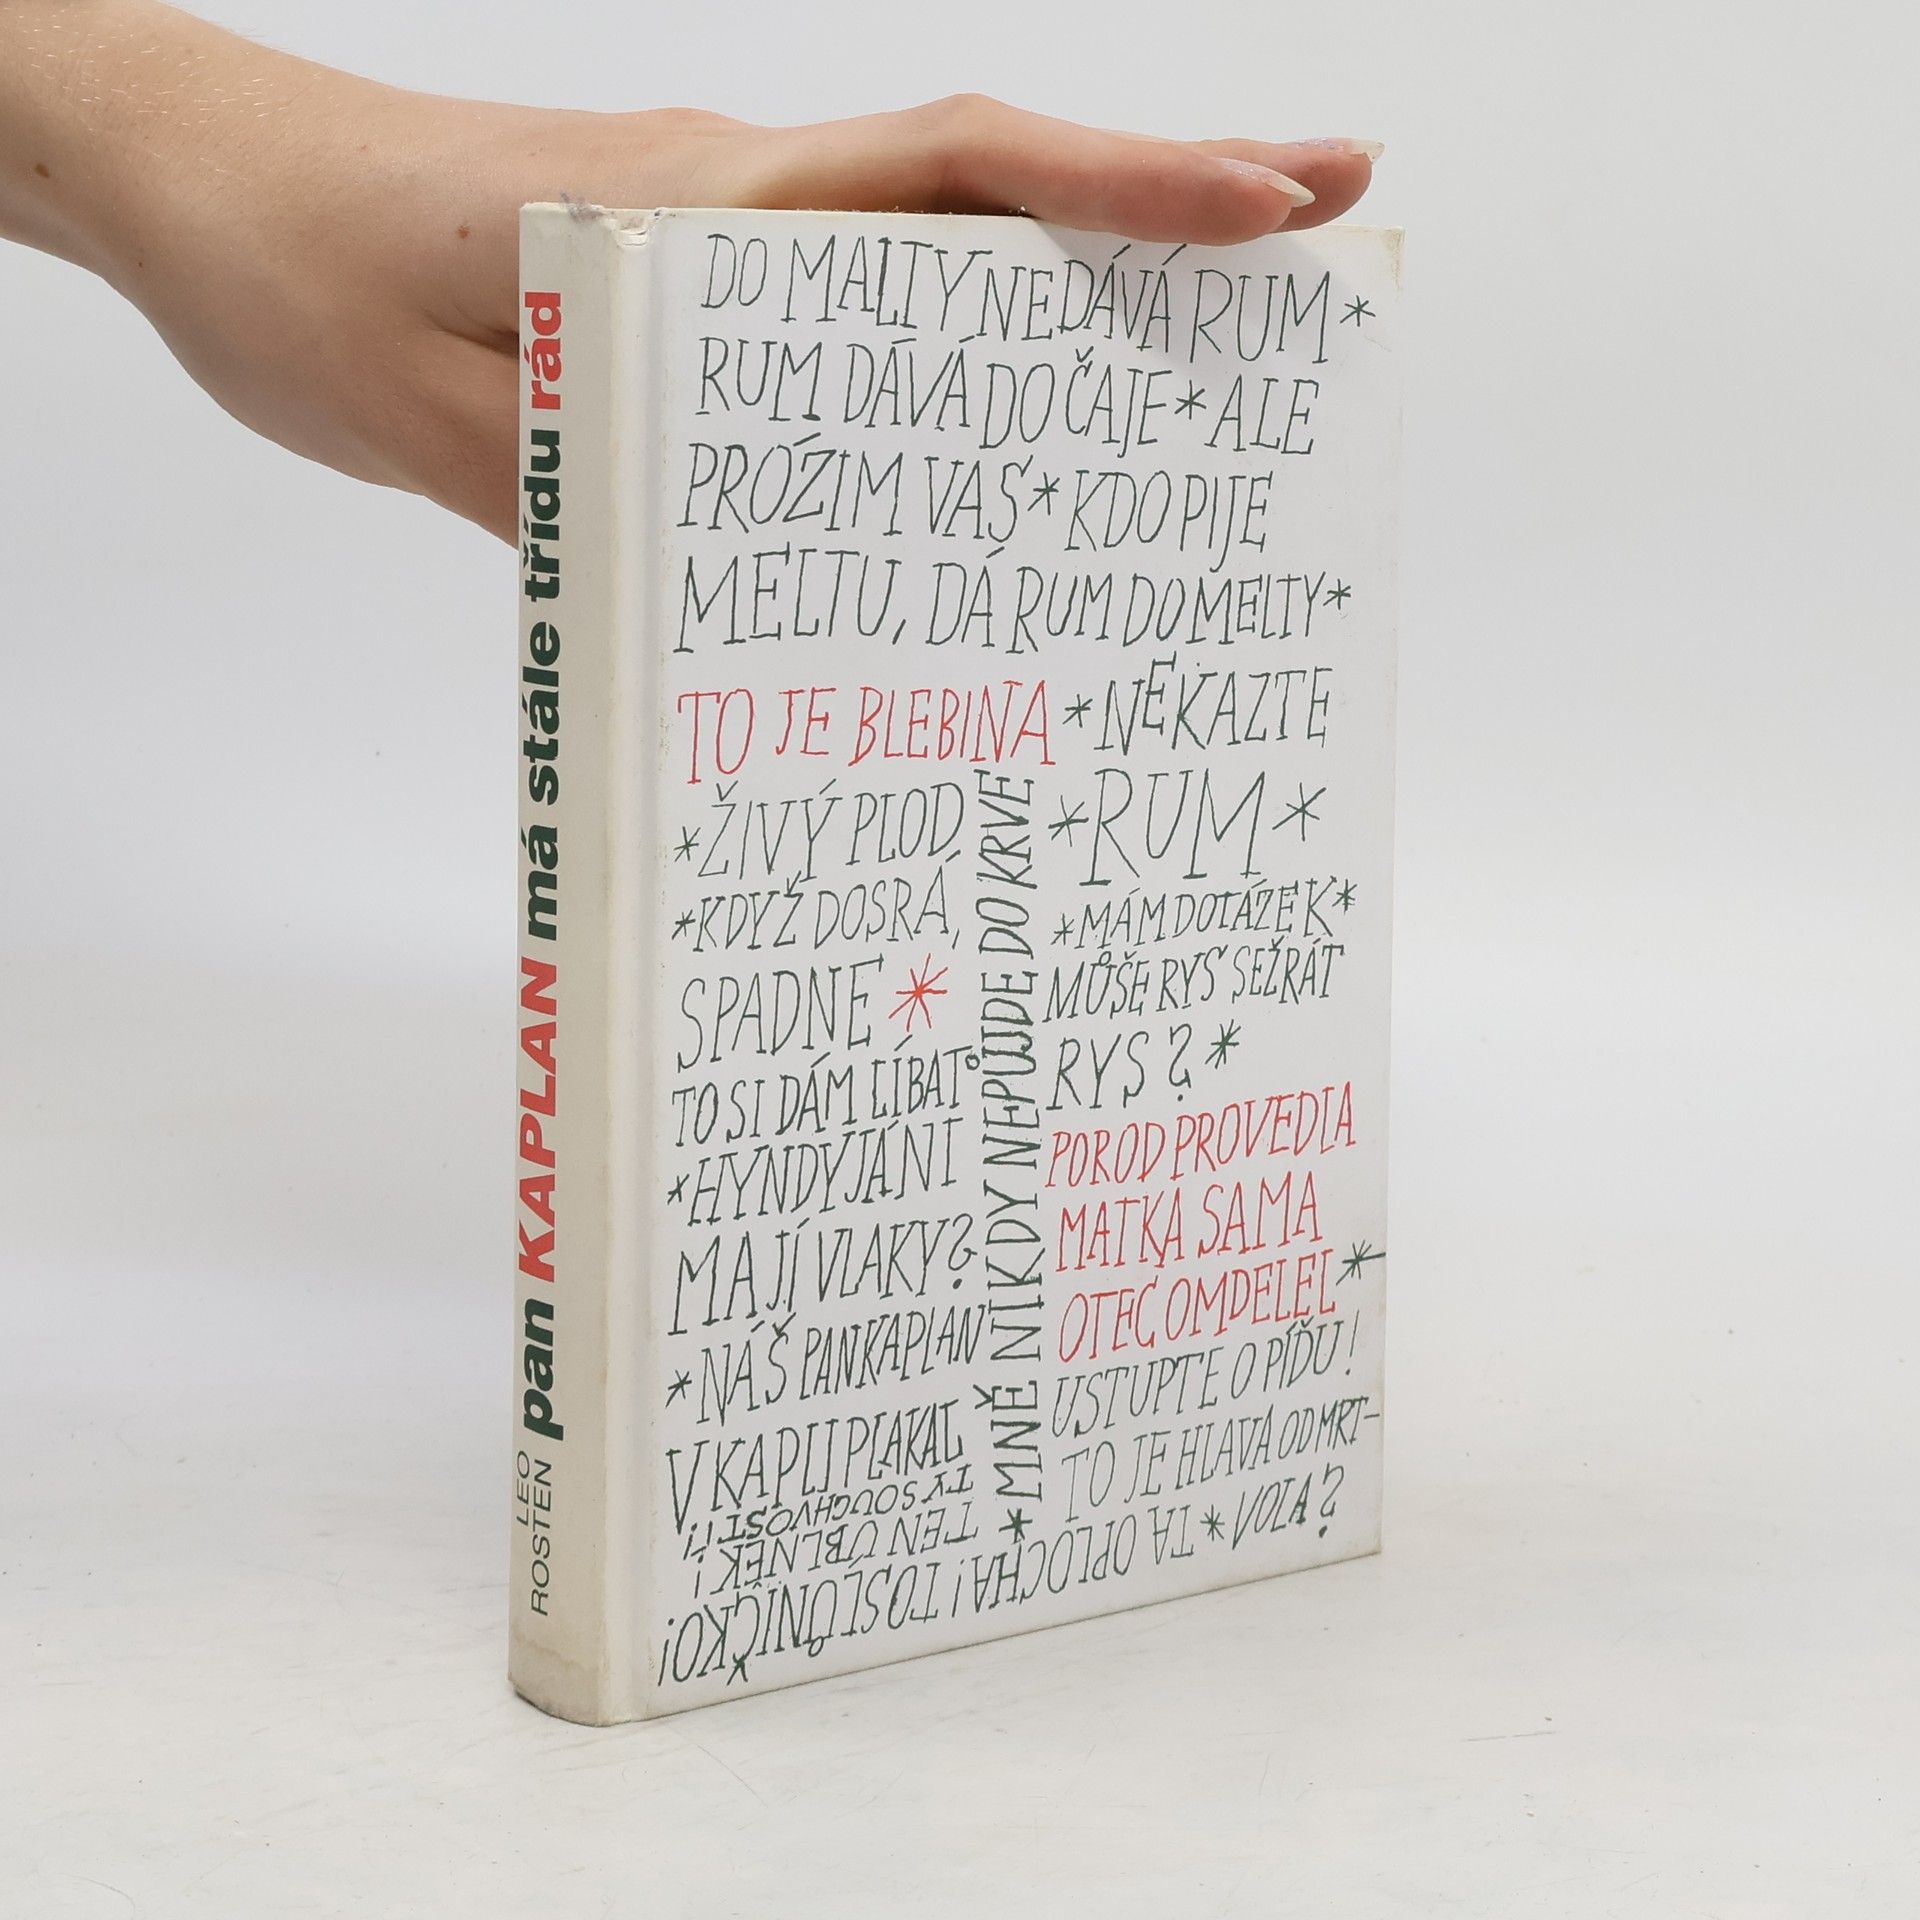 LEO
ROSTEN
pan KAPLAN má stále třídu rád
DO MALTY NEDÁVÁ RUM *
RUM DÁVÁ DO ČAJE * ALE
PRÓZIM VAS * KDO PIJE
MELTU, DÁ RUM DO MELTY *
TO JE BLEBINA * NEKAZTE
* RUM *
* ŽIVÝ PLOD,
* KDYŽ DOSRÁ,
SPADNE *
TO SI DÁM LÍBAT
* HYNDYJÁNI
MAJÍ VLAKY?
* NÁŠ PAN KAPLAN
V KAPLI PLAKAL
* MNĚ NIKDY NEPŮJDE DO KRVE
* MÁM DOTÁZEK *
MŮŠE RYS SEŽRÁT
RYS? *
POROD PROVEDLA
MATKA SAMA
OTEC OMDELEL *
USTUPTE O PÍĎU!
TO JE HLAVA OD MRT-
VOLA? * TA OPLOCHA! TO SLŮNÍČKO!
TEN ÚBLNĚK!
TY SOUCHVOSTI!